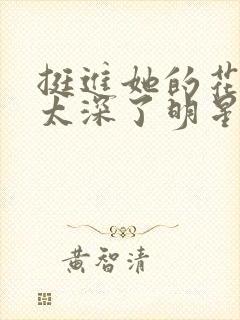 挺进她的花
太深了明星
黄智清